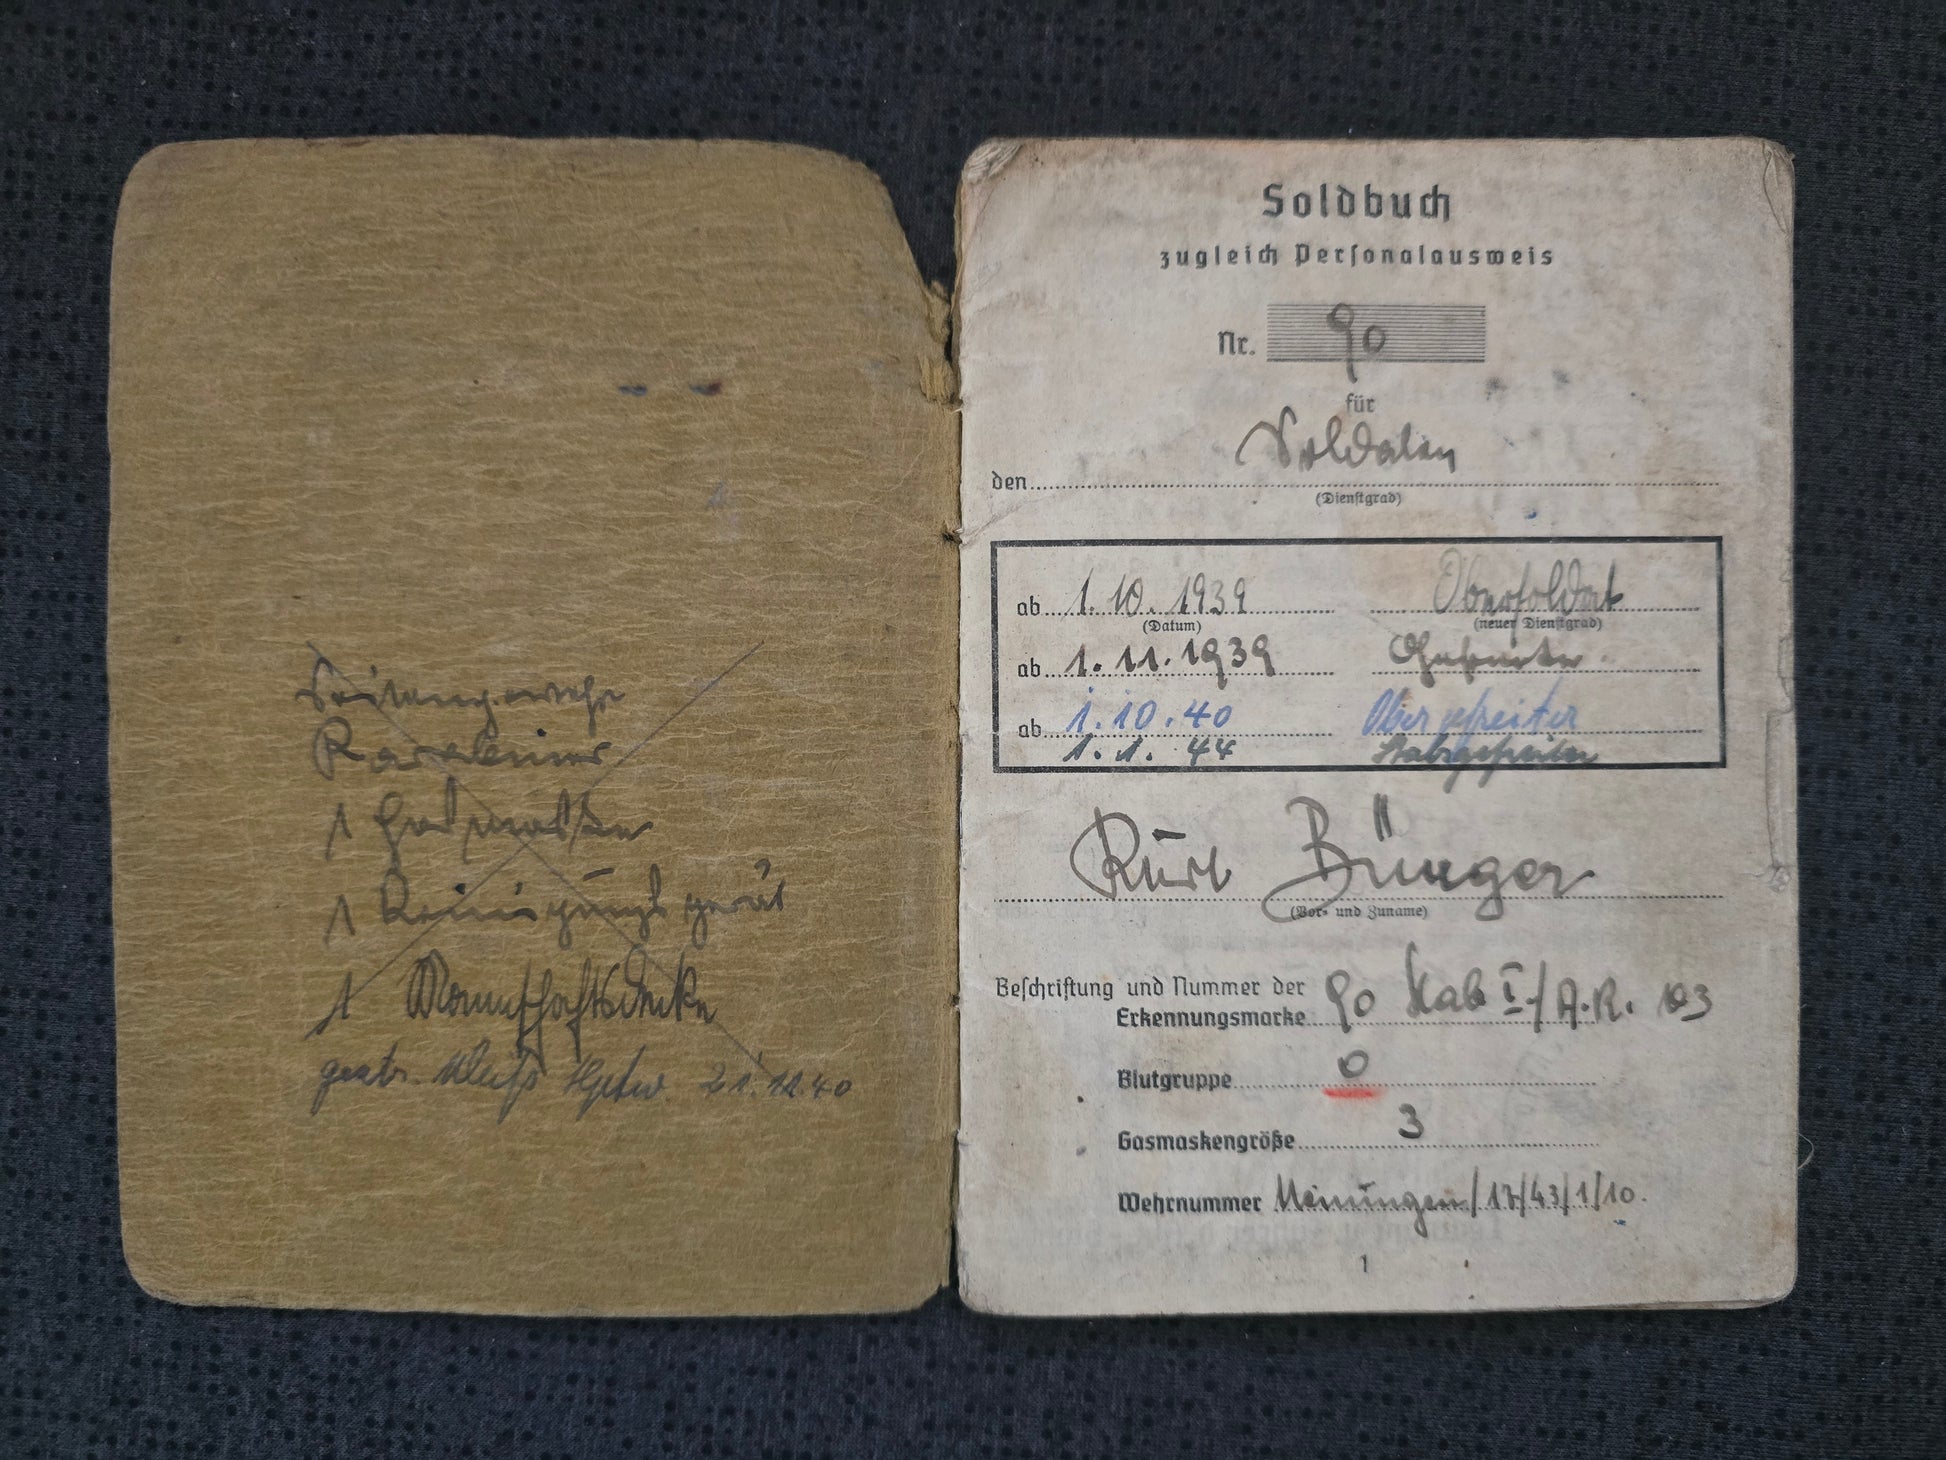 Seitengewehr
Karabiner
1 Gasmaske
1 Reinigungsgerät
1 Mannschaftsdecke
gestr. Weiß Hptw. 21.12.40
Soldbuch
zugleich Personalausweis
Nr. 90
für
den Soldaten
(Dienstgrad)
ab 1.10.1939 Obersoldat
(Datum) (neuer Dienstgrad)
ab 1.11.1939 Gefreiter
ab 1.10.40 Obergefreiter
1.1.44 Stabsgefreiter
Kurt Bürger
(Vor- und Zuname)
Beschriftung und Nummer der
Erkennungsmarke 90 Stab I./A.R. 103
Blutgruppe 0
Gasmaskengröße 3
Wehrnummer Meiningen/17/43/1/10.
1